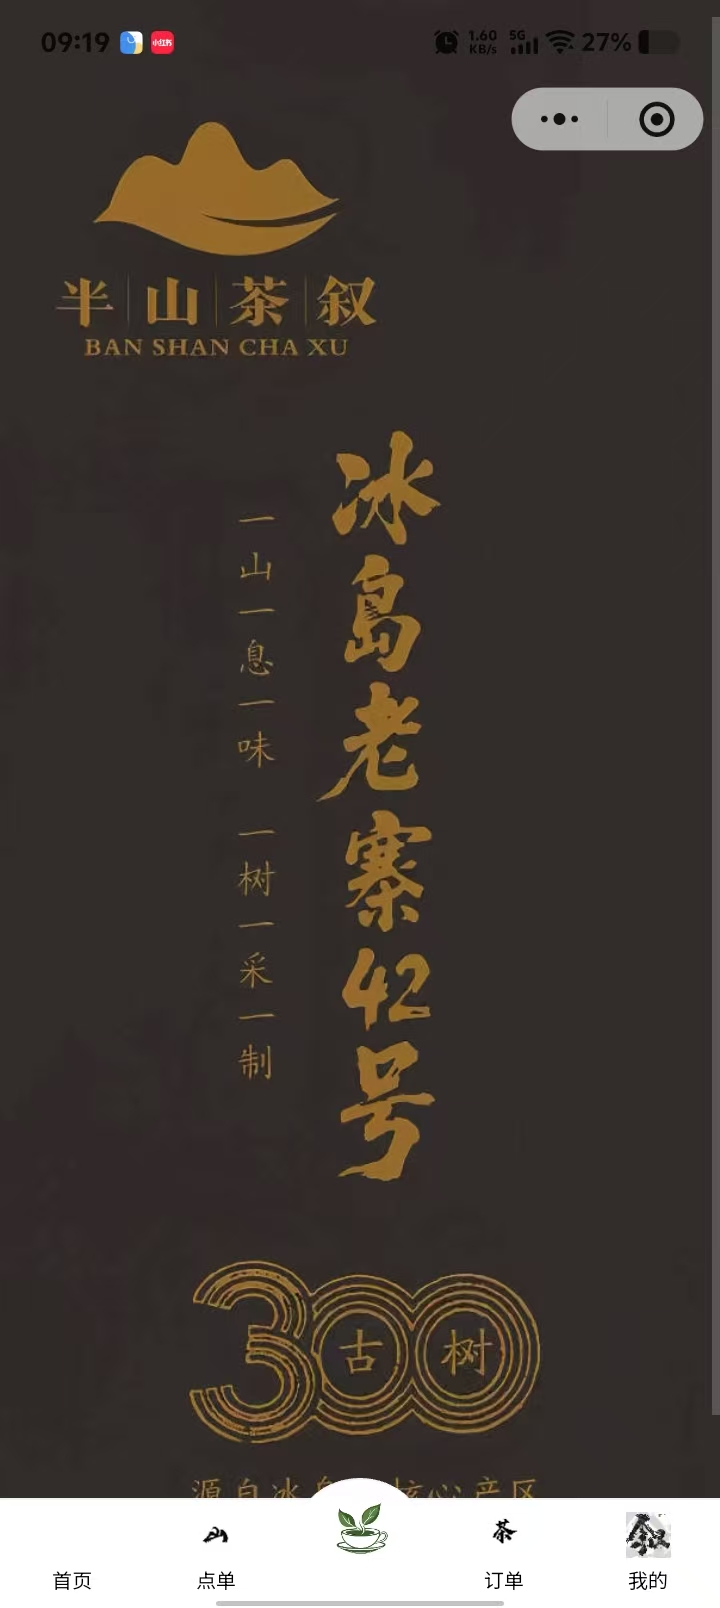 09:19
小红书
1.60 KB/s
5G
27%
半山茶叙
BAN SHAN CHA XU
冰岛老寨42号
一山一息一味 一树一采一制
300
古树
源自冰岛 核心产区
山
茶
叙
首页
点单
订单
我的